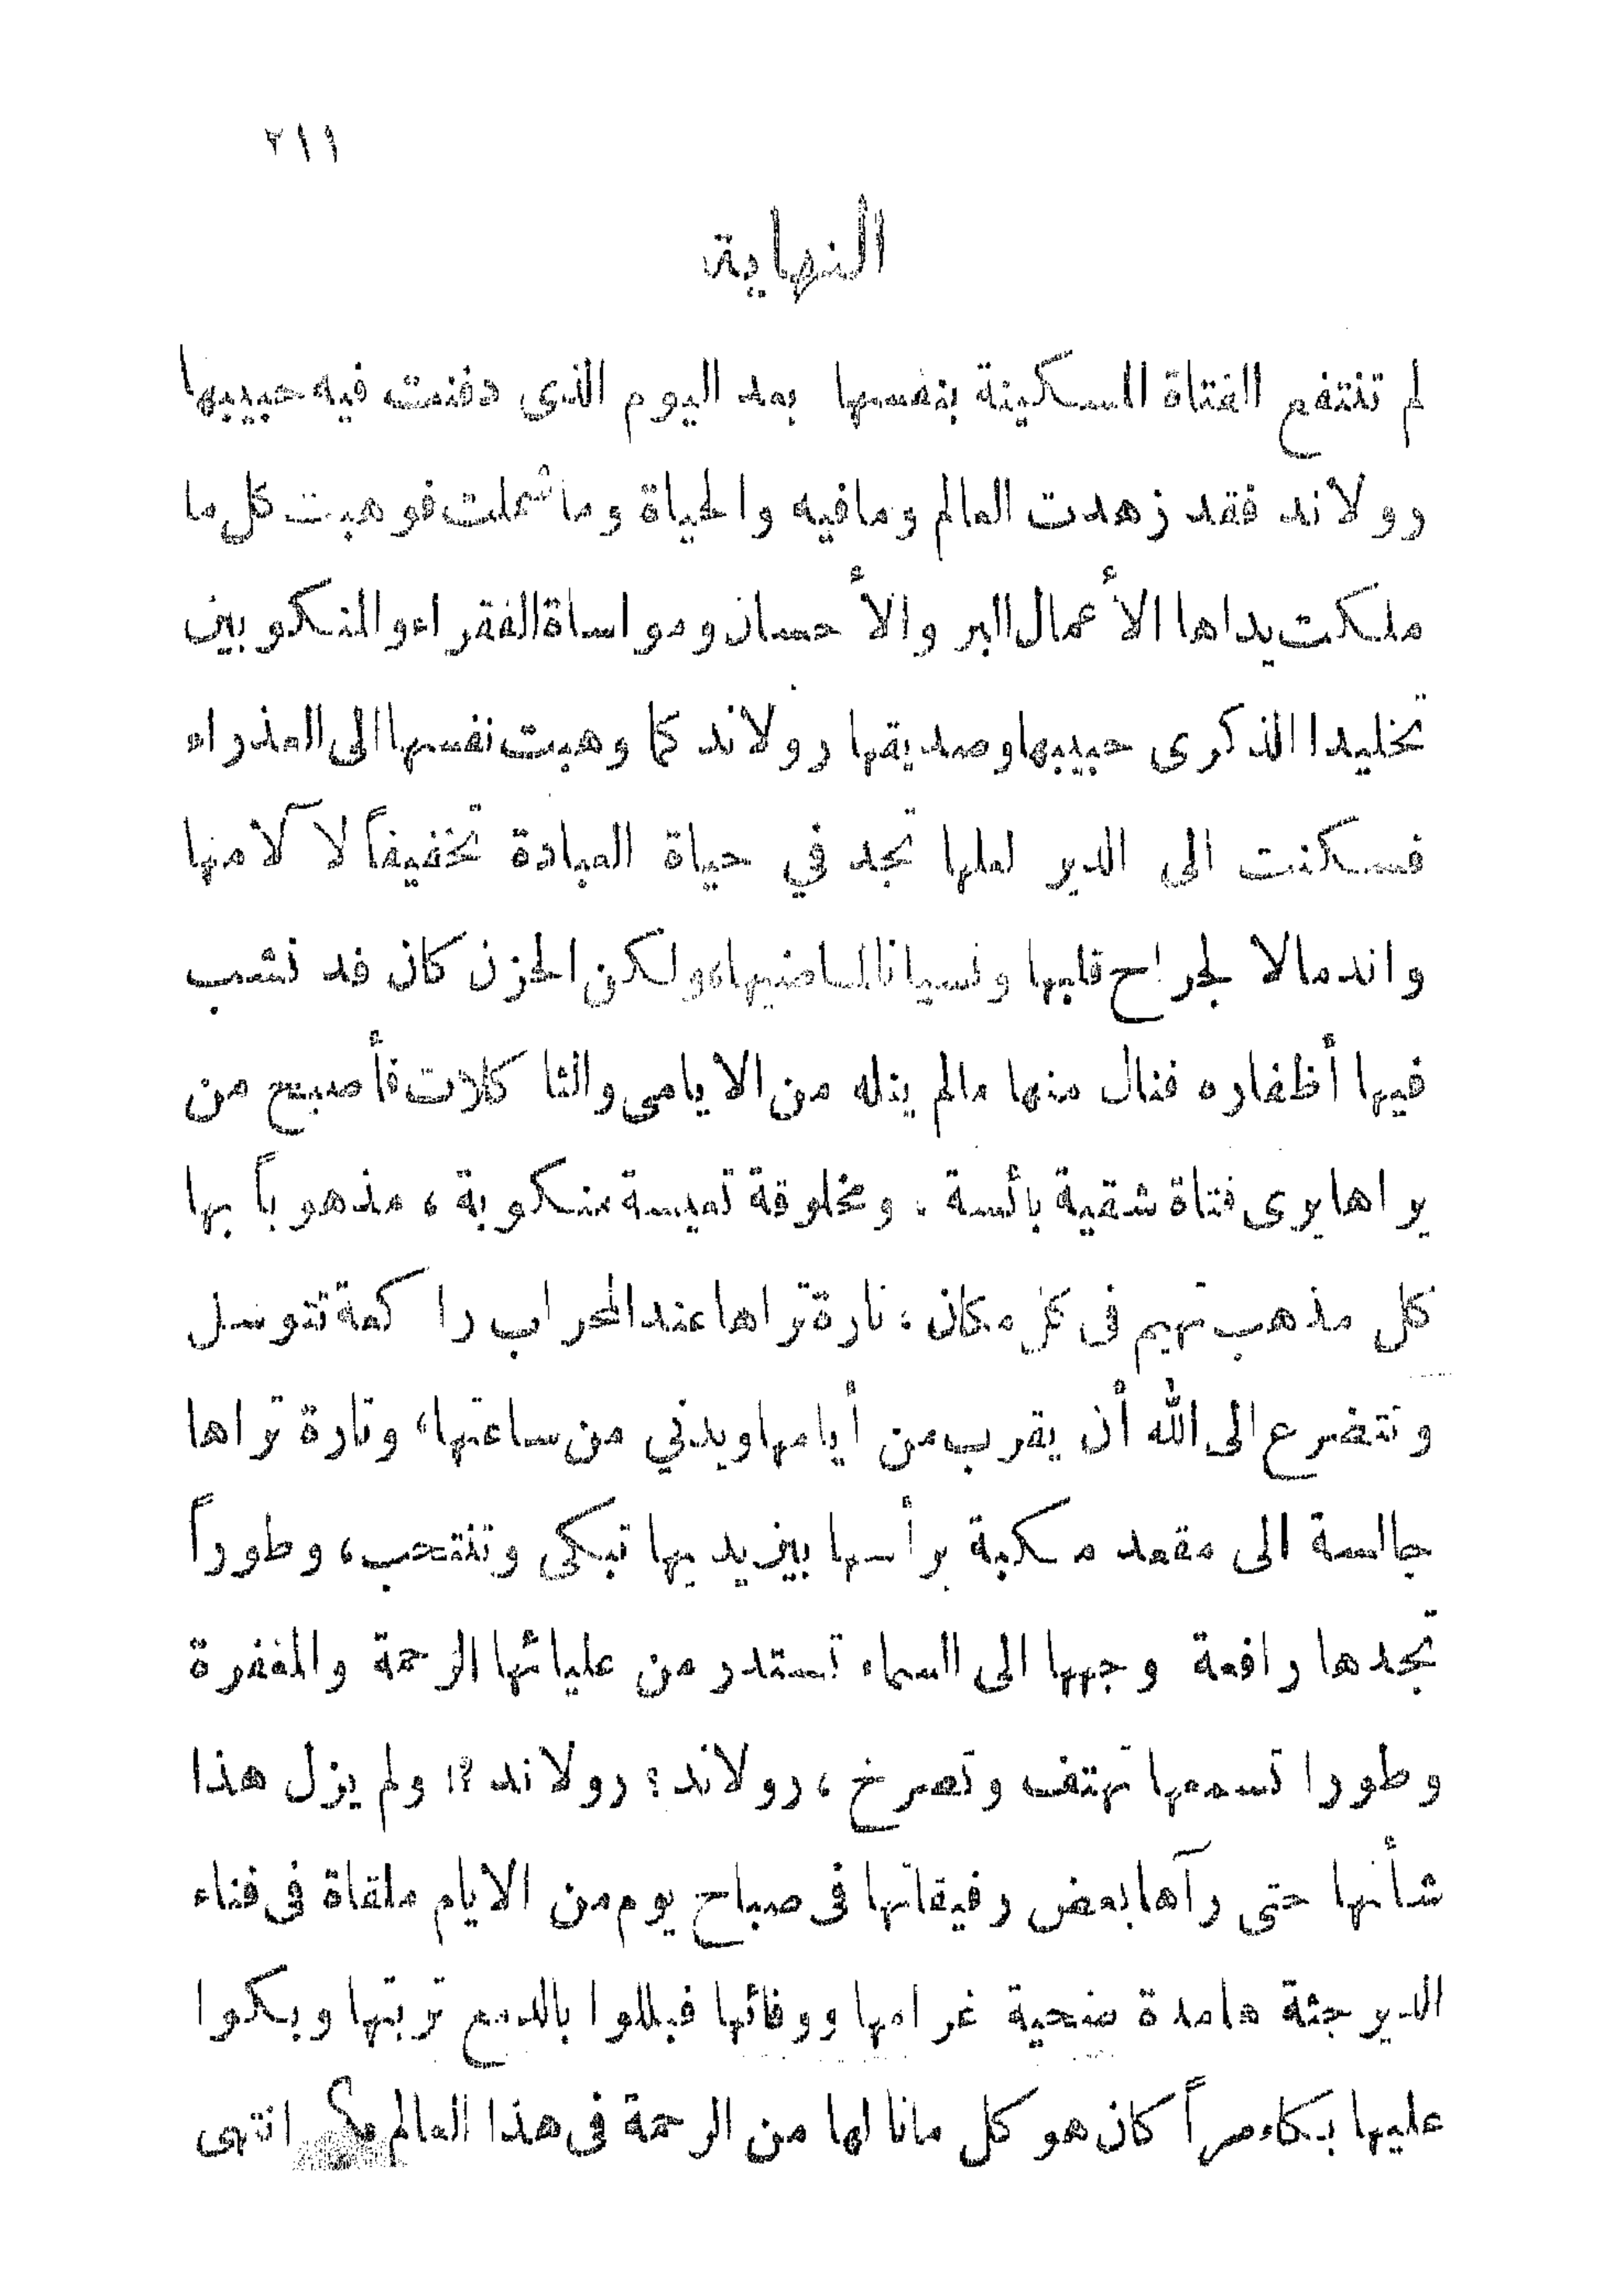 ٢١١
النهاية
لم تنتفع الفتاة المسكينة بنفسها بعد اليوم الذى دفنت فيه حبيبها
رولاند فقد زهدت العالم ومافيه والحياة وما شملت فوهبت كل ما
ملكت يداها الأعمال البر والأحسان ومواساة الفقراء والمنكوبين
تخليدا الذكرى حبيبها وصديقها رولاند كما وهبت نفسها الى العذراء
فسكنت الى الدير لعلها تجد في حياة العبادة تخفيفاً لآلامها
واندمالا لجراح قلبها ونسيانا لماضيها، ولكن الحزن كان قد نشب
فيها أظفاره فنال منها مالم ينله من الايامى والثاكلات فأصبح من
يراها يرى فتاة شقية بائسة، ومخلوقة تعيسة منكوبة، مذهوباً بها
كل مذهب تهيم فى كل مكان: تارة تراها عند المحراب راكعة تتوسل
وتتضرع الى الله أن يقرب من أيامها ويدني من ساعتها، وتارة تراها
جالسة الى مقعد مكبة برأسها بين يديها تبكى وتنتحب، وطوراً
تجدها رافعة وجهها الى السماء تستدر من عليائها الرحمة والمغفرة
وطورا تسمعها تهتف وتصرخ، رولاند؛ رولاند؟! ولم يزل هذا
شأنها حتى رآها بعض رفيقاتها فى صباح يوم من الايام ملقاة فى فناء
الدير جثة هامدة ضحية غرامها ووفائها فبللوا بالدمع تربتها وبكوا
عليها بكاء مراً كان هو كل مانالها من الرحمة فى هذا العالم انتهى